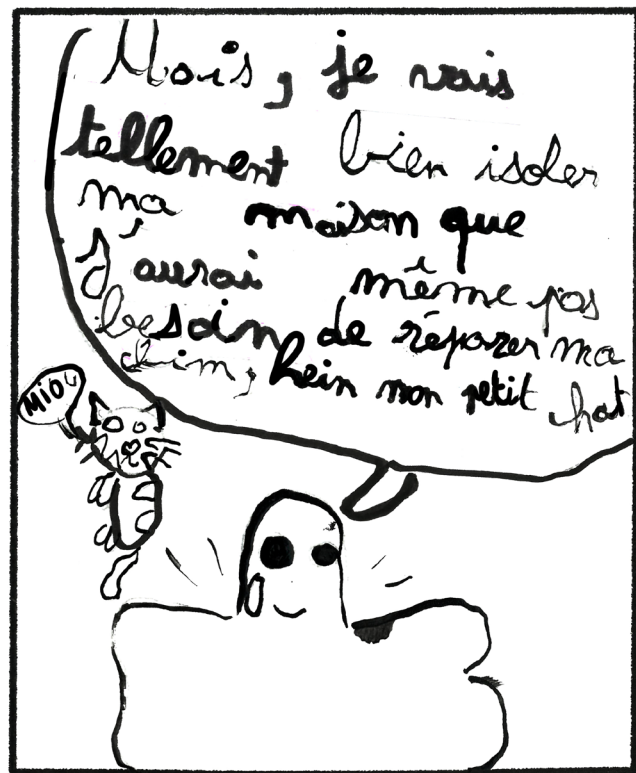 Mais, je vais
tellement bien isoler
ma maison que
j'aurai même pas
besoin de réparer ma
clim, hein mon petit chat
MIOU